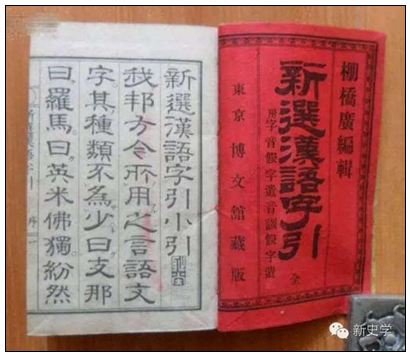 棚橋廣編輯
新選漢語字引 全
字音假字遣音訓假字遣
東京 博文館藏版
新選漢語字引小引
我邦方今所用之言語文
字其種類不為少曰支那
曰羅馬曰英米佛獨紛然
新史学